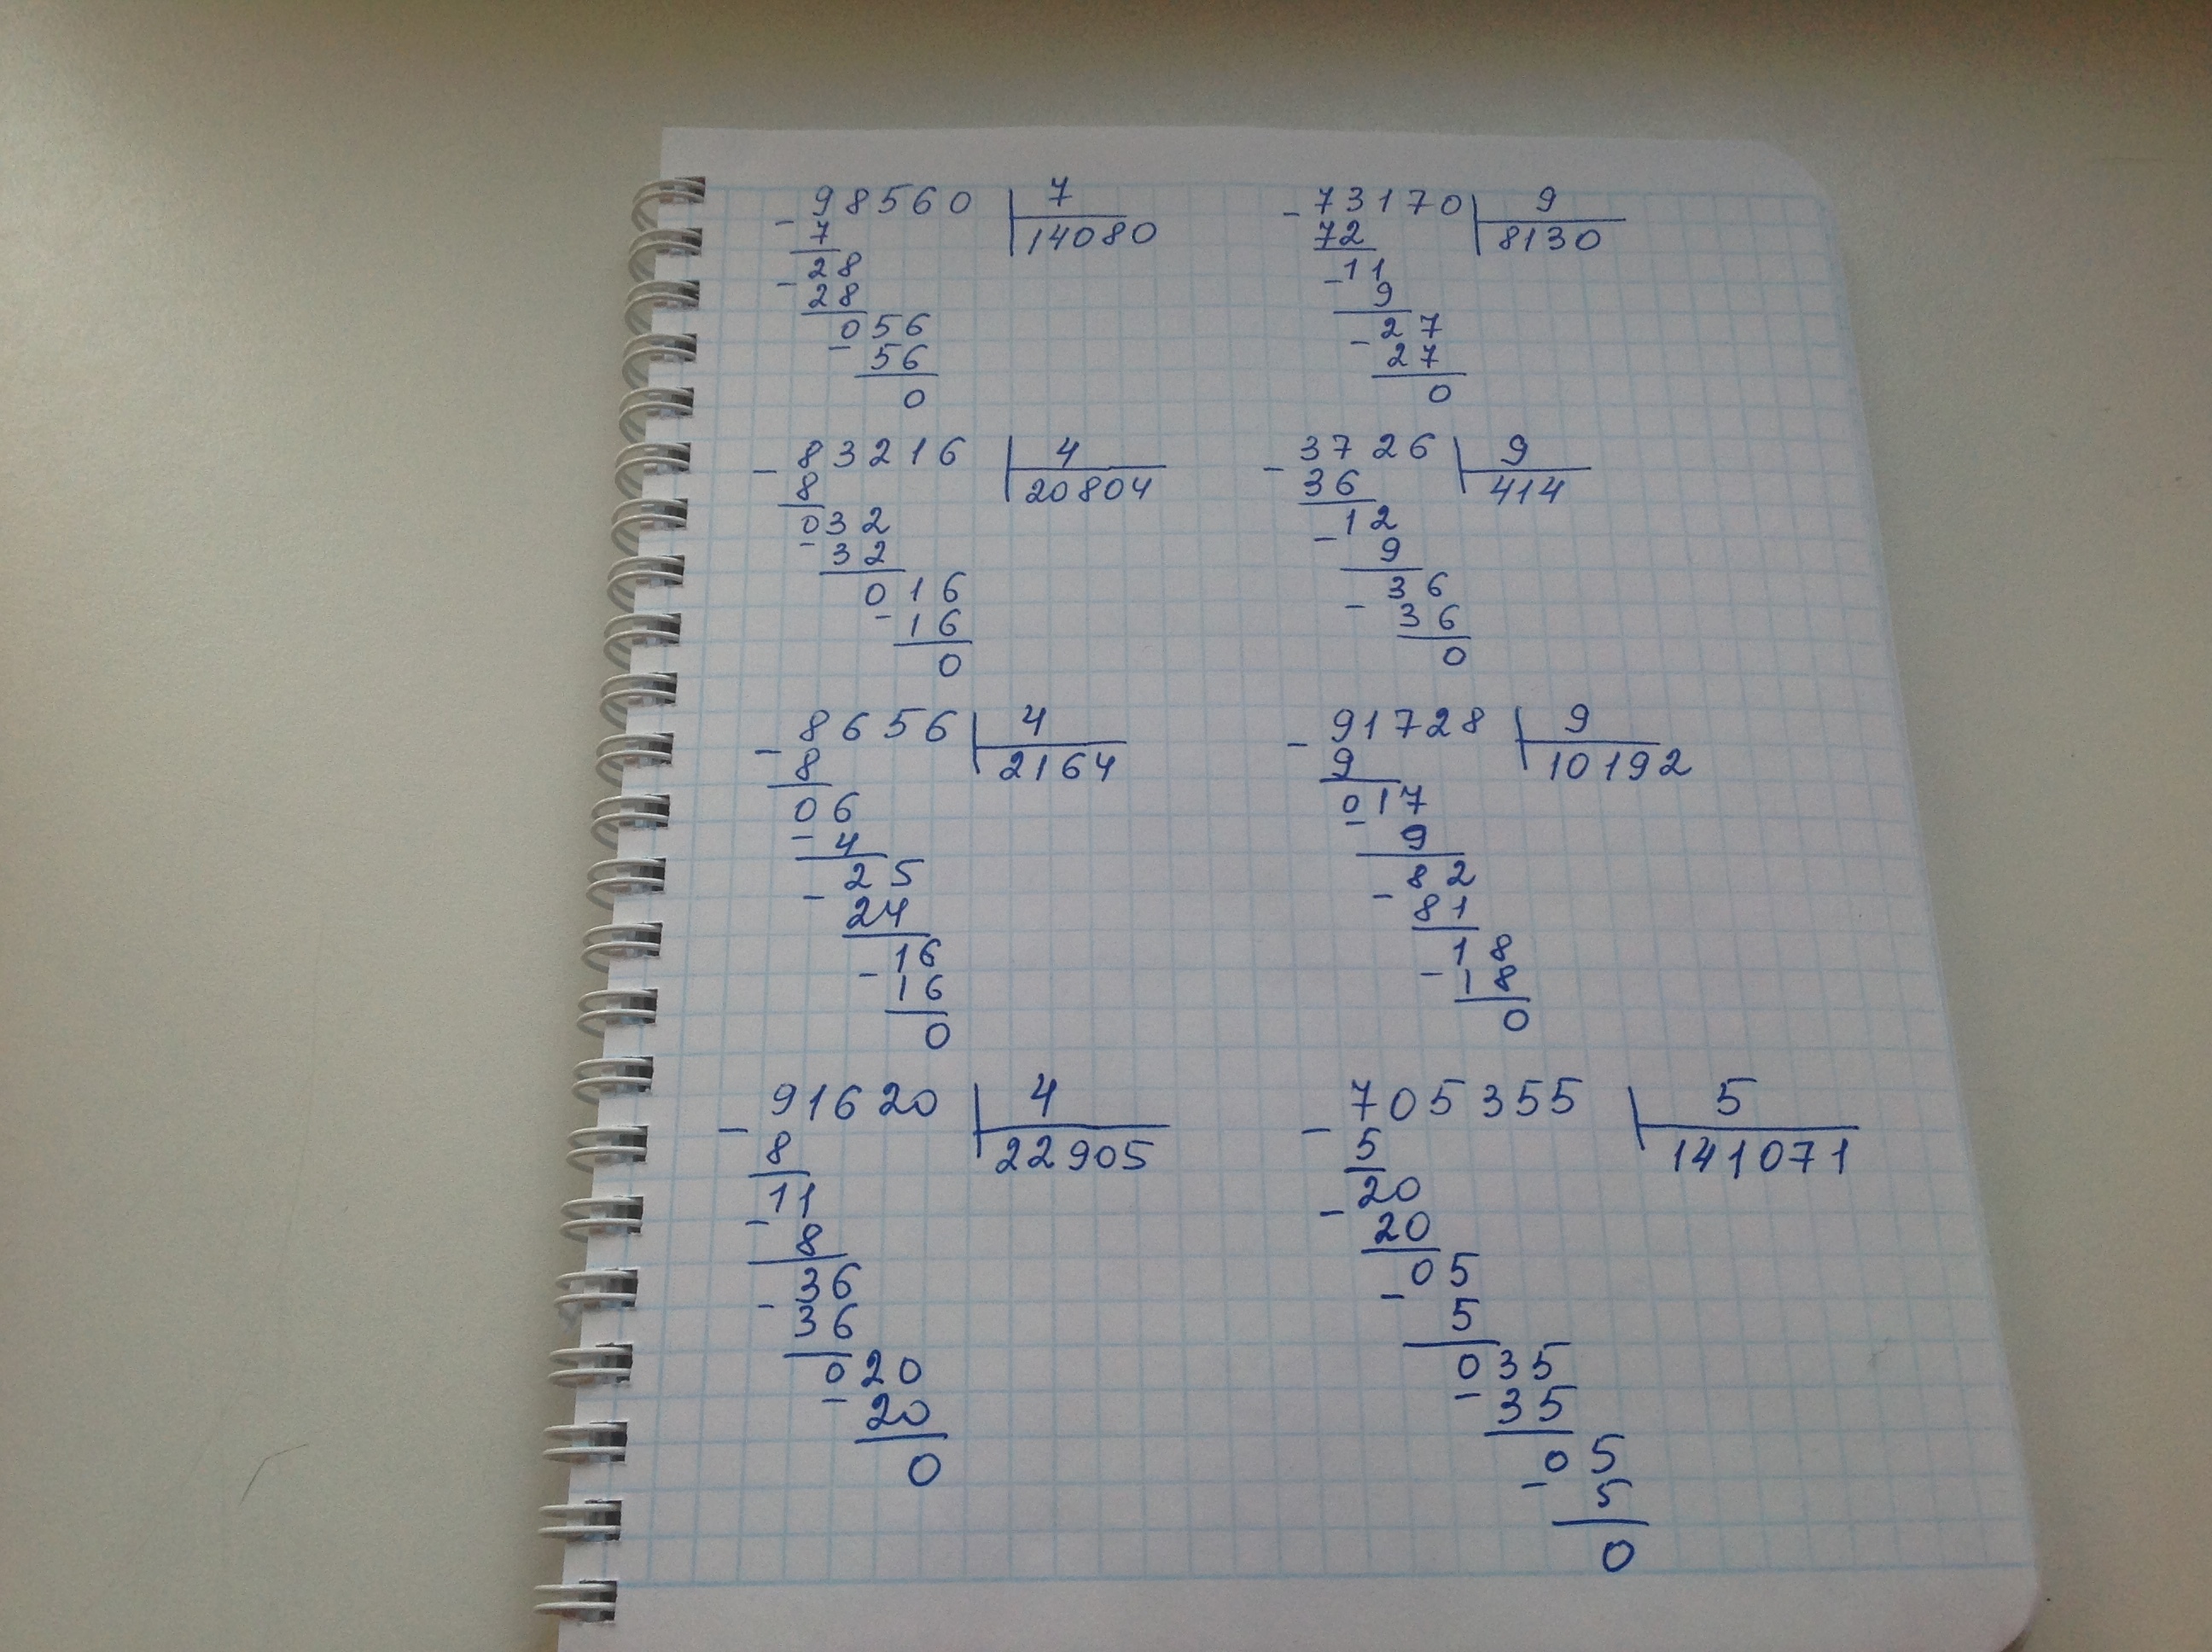 98560 7
- 7 14080
28
- 28
056
- 56
0
- 73170 9
72 8130
11
- 9
27
- 27
0
- 83216 4
8 20804
032
- 32
016
- 16
0
- 3726 9
36 414
12
- 9
36
- 36
0
- 8656 4
8 2164
06
- 4
25
- 24
16
- 16
0
- 91728 9
9 10192
017
- 9
82
- 81
18
- 18
0
- 91620 4
8 22905
11
- 8
36
- 36
020
- 20
0
- 705355 5
5 141071
20
- 20
05
- 5
035
- 35
05
- 5
0